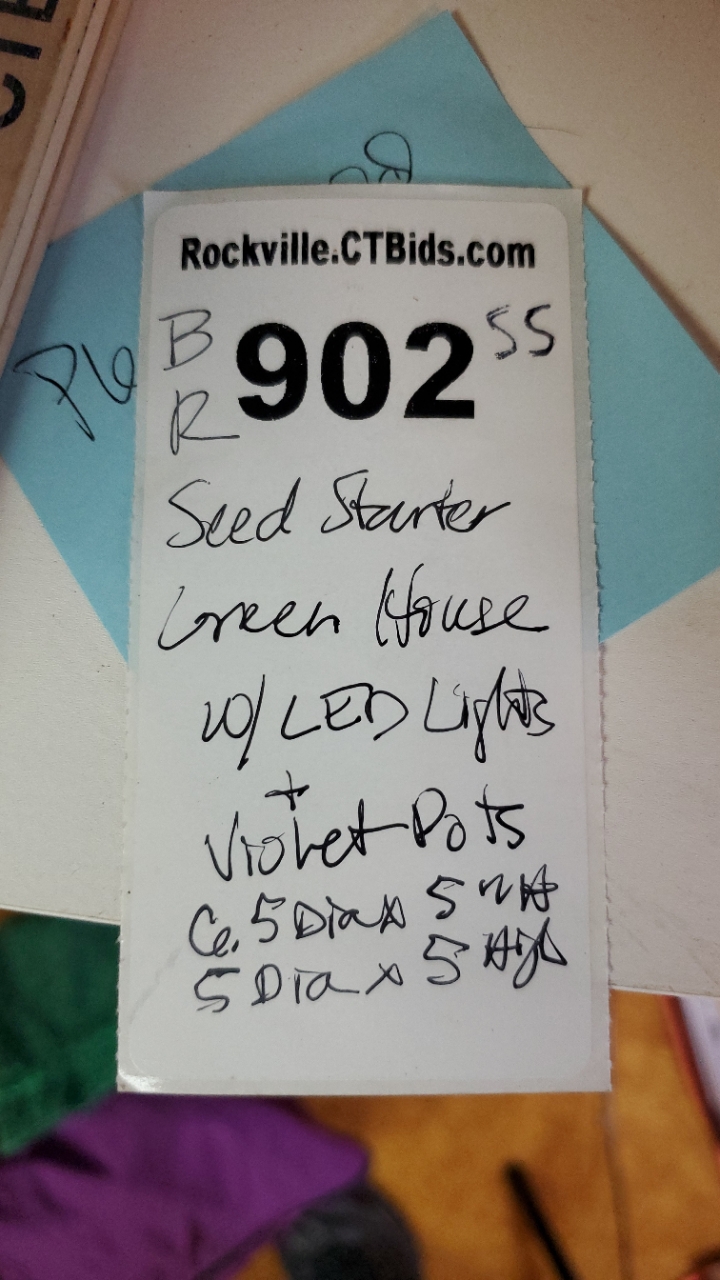 Rockville.CTBids.com
B 902 SS
R
Seed Starter
Green House
w/ LED Lights
+
Violet Pots
5 Dia x 5
5 Dia x 5 High